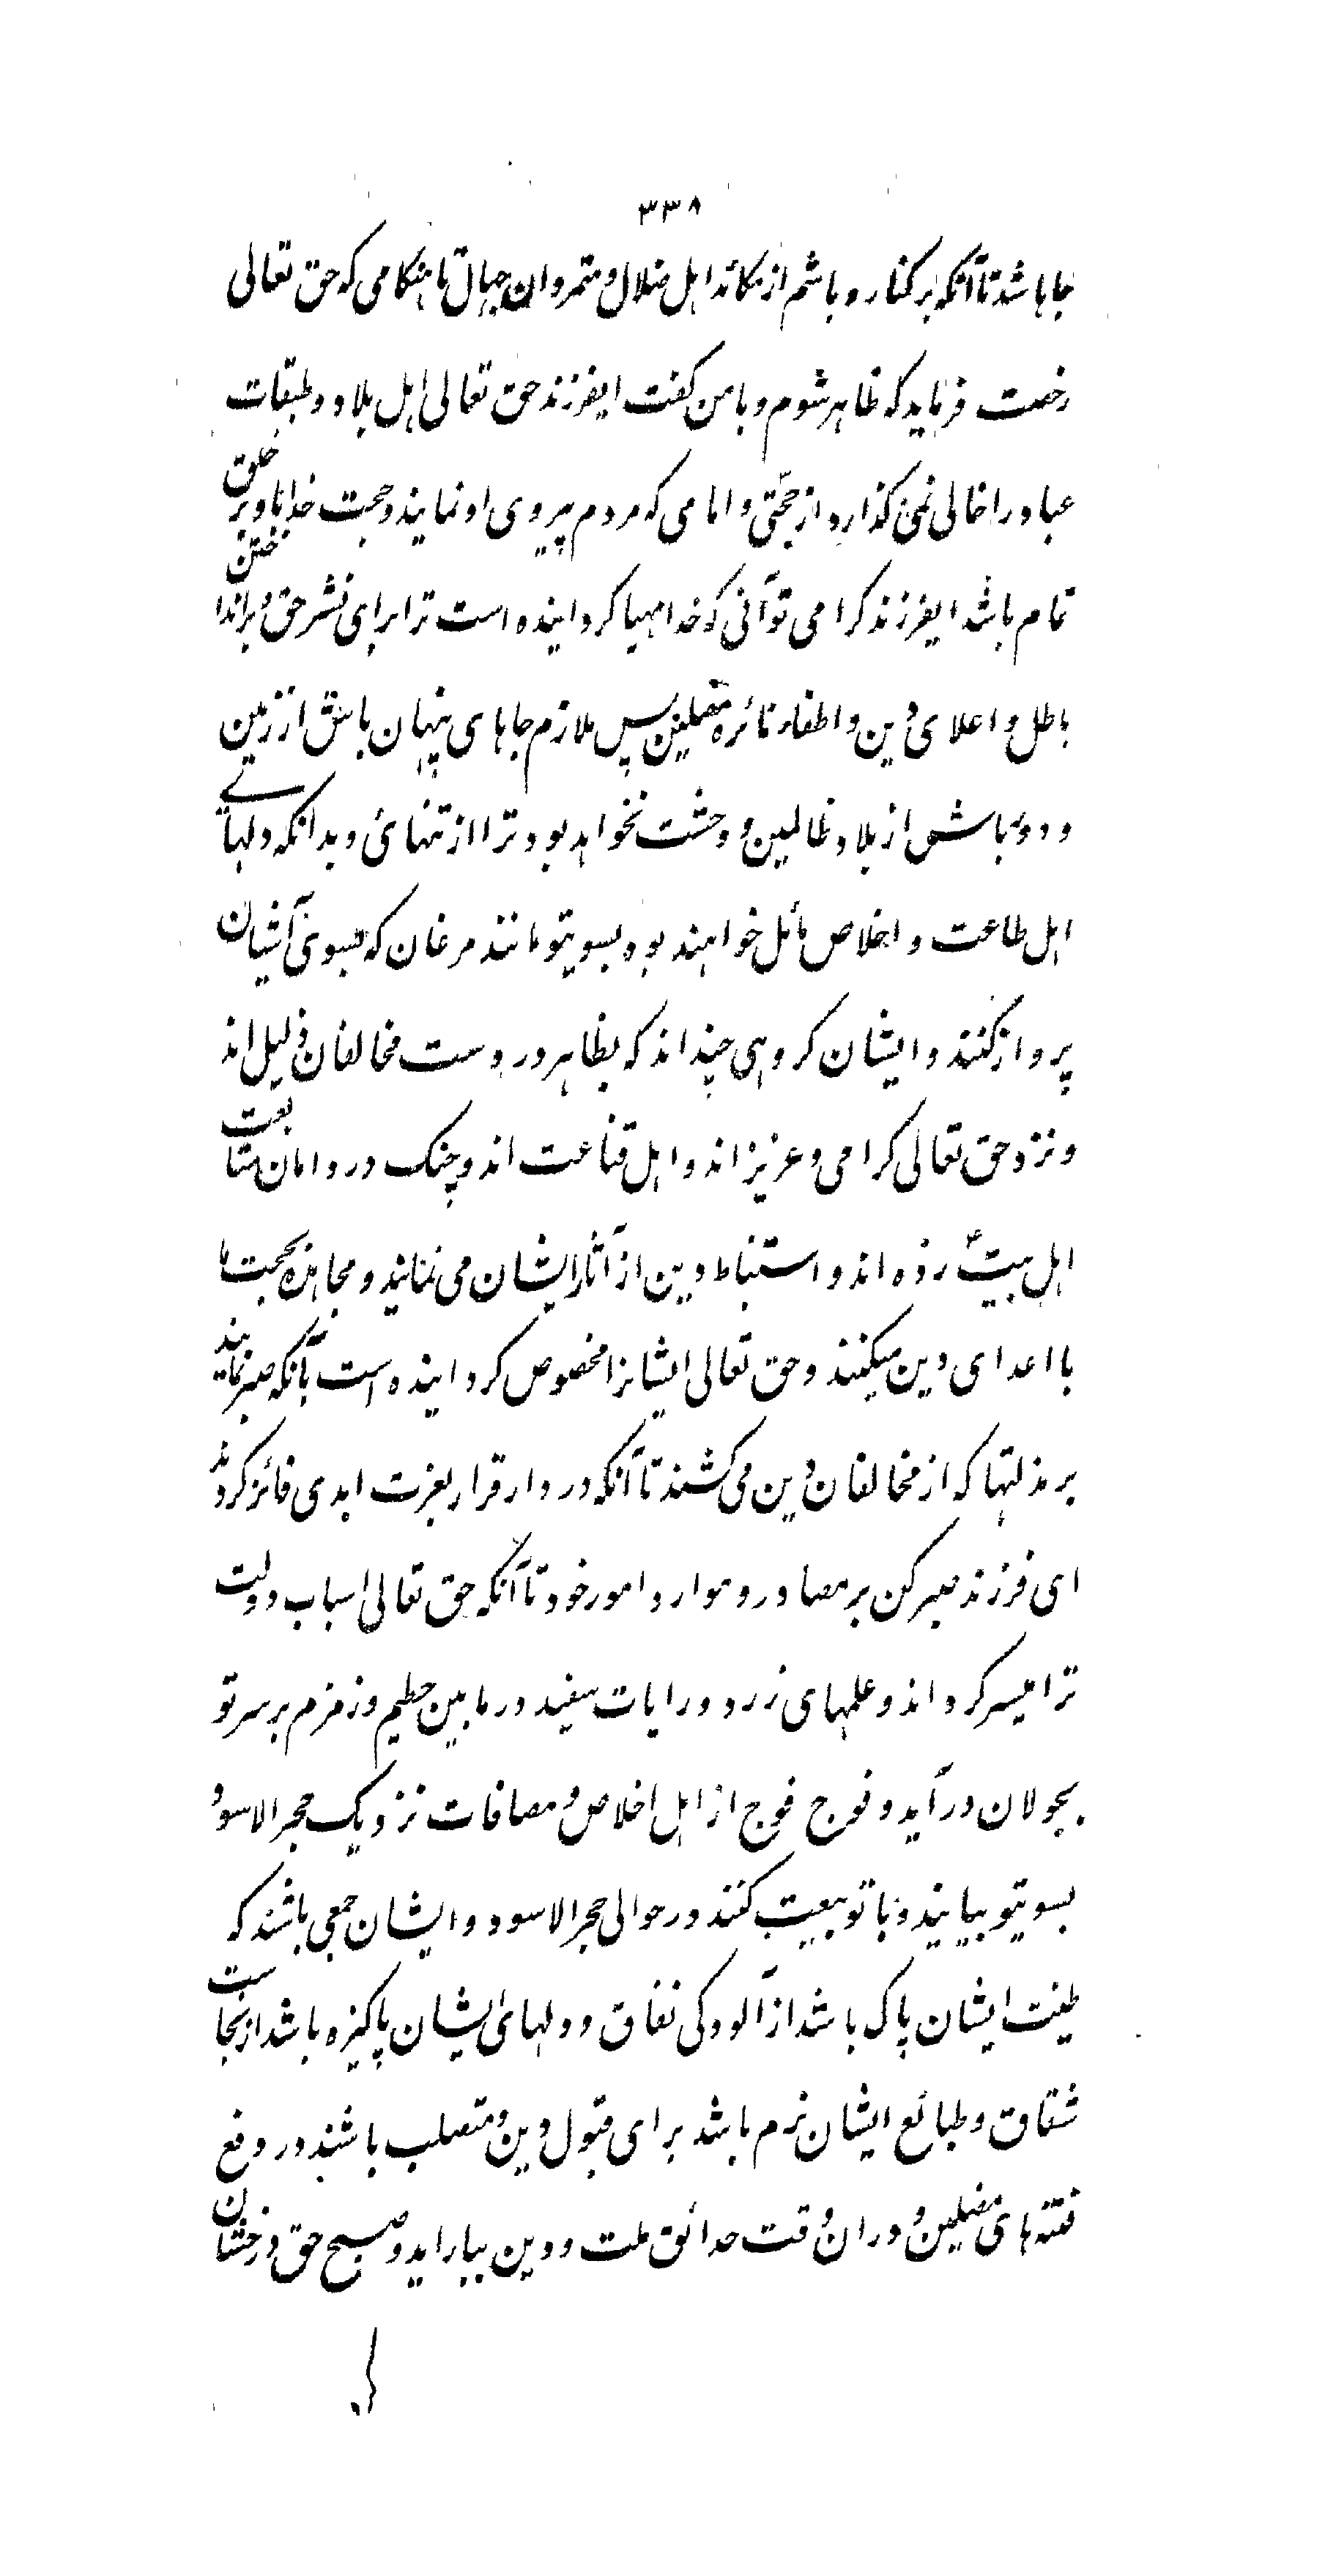 ۳۳۸
جاها شد تا آنکه بر کنار و باشم از مکائد اهل ضلال و متمردان جهال تا هنکامی که حق تعالی
رخصت فرماید که ظاهر شوم و با من کفت ایفرزند حق تعالی اهل بلاد و طبقات
عباد را خالی نمی کذارد از حجتی و امامی که مردم پیروی او نمایند و حجت خدا باو بر خلق
تمام باشد ایفرزند کرامی تو آنی که خدا مهیا کردانیده است ترا برای نشر حق و برانداختن
باطل و اعلای دین و اطفاء نائره مضلین پس ملازم جاهای پنهان باش از زمین
و دور باش از بلاد ظالمین و وحشت نخواهد بود ترا از تنهائی و بدانکه دلهای
اهل طاعت و اخلاص مائل خواهند بود بسویتو مانند مرغان که بسوی آشیان
پرواز کنند و ایشان کروهی چند اند که بظاهر در دست مخالفان ذلیل اند
و نزد حق تعالی کرامی و عزیز اند و اهل قناعت اند و چنک در دامان متابعت
اهل بیتؑ زده اند و استنباط دین از آثار ایشان می نمایند و مجاهده بحجت ها
با اعدای دین میکنند و حق تعالی ایشانرا مخصوص کردانیده است بآنکه صبر نمایند
بر مذلتها که از مخالفان دین می کشند تا آنکه در دار قرار بعزت ابدی فائز کردند
ای فرزند صبر کن بر مصادر و موارد امور خود تا آنکه حق تعالی اسباب دولت
ترا میسر کرداند و علمهای زرد و رایات سفید در مابین حطیم و زمزم بر سر تو
بجولان در آید و فوج فوج از اهل اخلاص و مصافات نزدیک حجر الاسود
بسویتو بیایند و با تو بیعت کنند در حوالی حجر الاسود و ایشان جمعی باشند که
طینت ایشان پاک باشد از آلودکی نفاق و دلهای ایشان پاکیزه باشد از نجاست
شقاق و طبائع ایشان نرم باشد برای قبول دین و متصلب باشند در دفع
فتنه های مضلین و دران وقت حدائق ملت و دین ببار اید و صبح حق درخشان